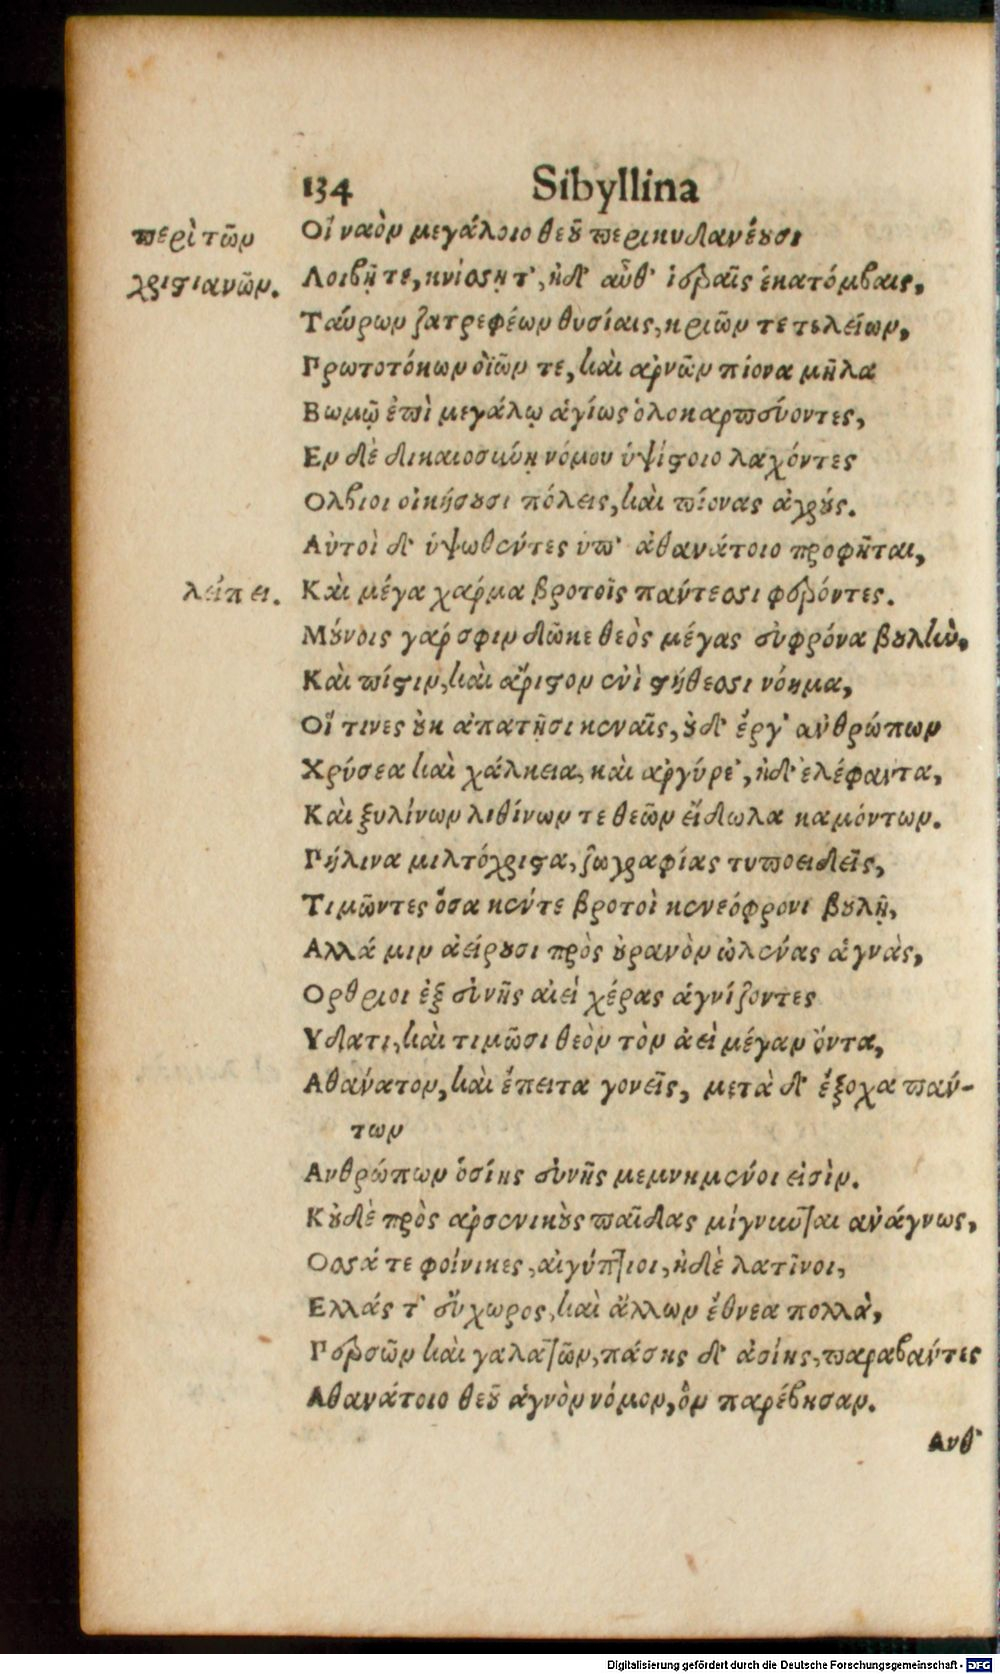 134 Sibyllina
περὶ τῶν
χριστιανῶν.
Οἳ ναὸν μεγάλοιο θεοῦ περικυδανέουσι
Λοιβῇ τε, κνίσσῃ τ', ἠδ' αὖθ' ἱεραῖς ἑκατόμβαις,
Ταύρων ζατρεφέων θυσίαις, κριῶν τε τελείων,
Πρωτοτόκων ὀΐων τε, καὶ ἀρνῶν πίονα μῆλα
Βωμῷ ἐπὶ μεγάλῳ ἁγίως ὁλοκαρπεύοντες,
Εν δὲ δικαιοσύνῃ νόμου ὑψίστοιο λαχόντες
Ολβιοι οἰκήσουσι πόλεις, καὶ πίονας ἀγρούς.
Αὐτοὶ δ' ὑψωθέντες ὑπ' ἀθανάτοιο προφῆται,
λείπει.
Καὶ μέγα χάρμα βροτοῖς πάντεσσι φέροντες.
Μούνοις γάρ σφιν δῶκε θεὸς μέγας εὔφρονα βουλὴν,
Καὶ πίστιν, καὶ ἄριστον ἐνὶ στήθεσσι νόημα,
Οἵ τινες οὐκ ἀπατῇσι κεναῖς, οὐδ' ἔργ' ἀνθρώπων
Χρύσεα καὶ χάλκεια, καὶ ἀργύρε', ἠδ' ἐλέφαντα,
Καὶ ξυλίνων λιθίνων τε θεῶν εἴδωλα καμόντων.
Πήλινα μιλτόχριστα, ζωγραφίας τυποειδεῖς,
Τιμῶντες ὅσα κέντε βροτοὶ κενεόφρονι βουλῇ,
Αλλά μιν ἀείρουσι πρὸς οὐρανὸν ὠλένας ἁγνὰς,
Ορθριοι ἐξ εὐνῆς αἰεὶ χέρας ἁγνίζοντες
Υδατι, καὶ τιμῶσι θεὸν τὸν ἀεὶ μέγαν ὄντα,
Αθάνατον, καὶ ἔπειτα γονεῖς, μετὰ δ' ἔξοχα πάν-
των
Ανθρώπων ὁσίης εὐνῆς μεμνημένοι εἰσὶν.
Κοὐδὲ πρὸς ἀρσενικοὺς παῖδας μίγνυνται ἀνάγνως,
Οσσά τε φοίνικες, αἰγύπτιοι, ἠδὲ λατῖνοι,
Ελλάς τ' εὔχωρος, καὶ ἄλλων ἔθνεα πολλὰ,
Περσῶν καὶ γαλατῶν, πάσης δ' ἀσίης, παραβάντες
Αθανάτοιο θεοῦ ἁγνὸν νόμον, ὃν παρέβησαν.
Ανθ'
Digitalisierung gefördert durch die Deutsche Forschungsgemeinschaft - DFG